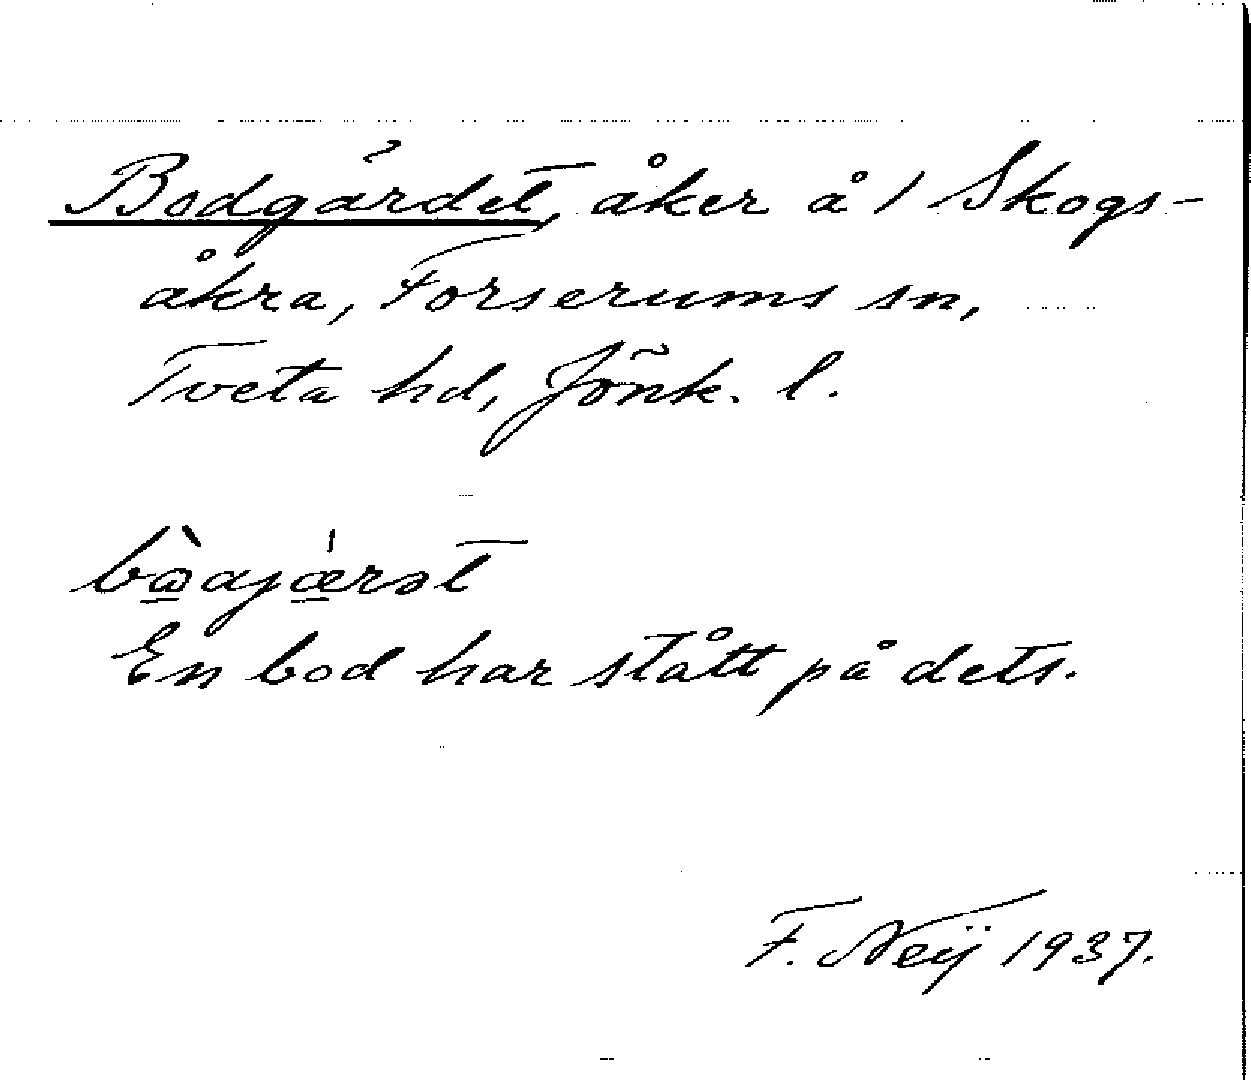 Bodgärdet, åker å 1 Skogs-
åkra, Forserums sn,
Tveta hd, Jönk. l.
En bod har stått på dets.
F. Neij 1937.